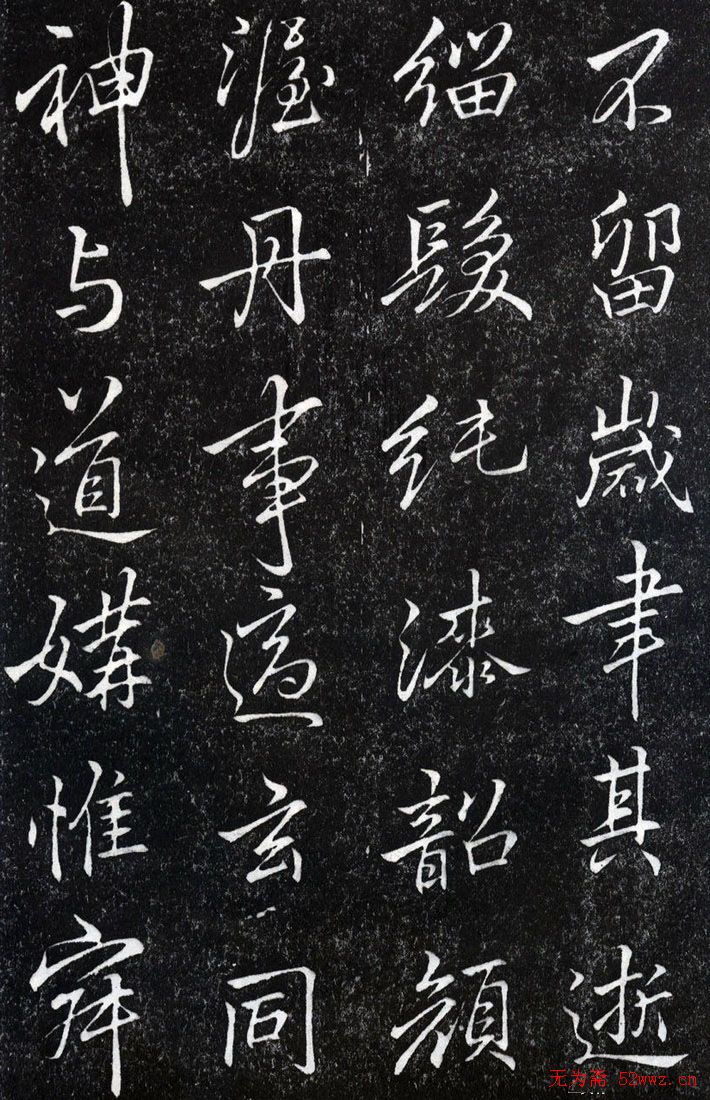 不留歲聿其逝
緇髮純漆韶顏
渥丹事適玄同
神与道媾惟
无为斋 52wwz.cn